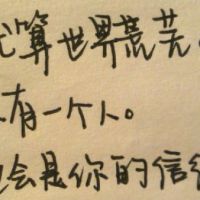 算世界荒芜
有一个人。
会是你的信